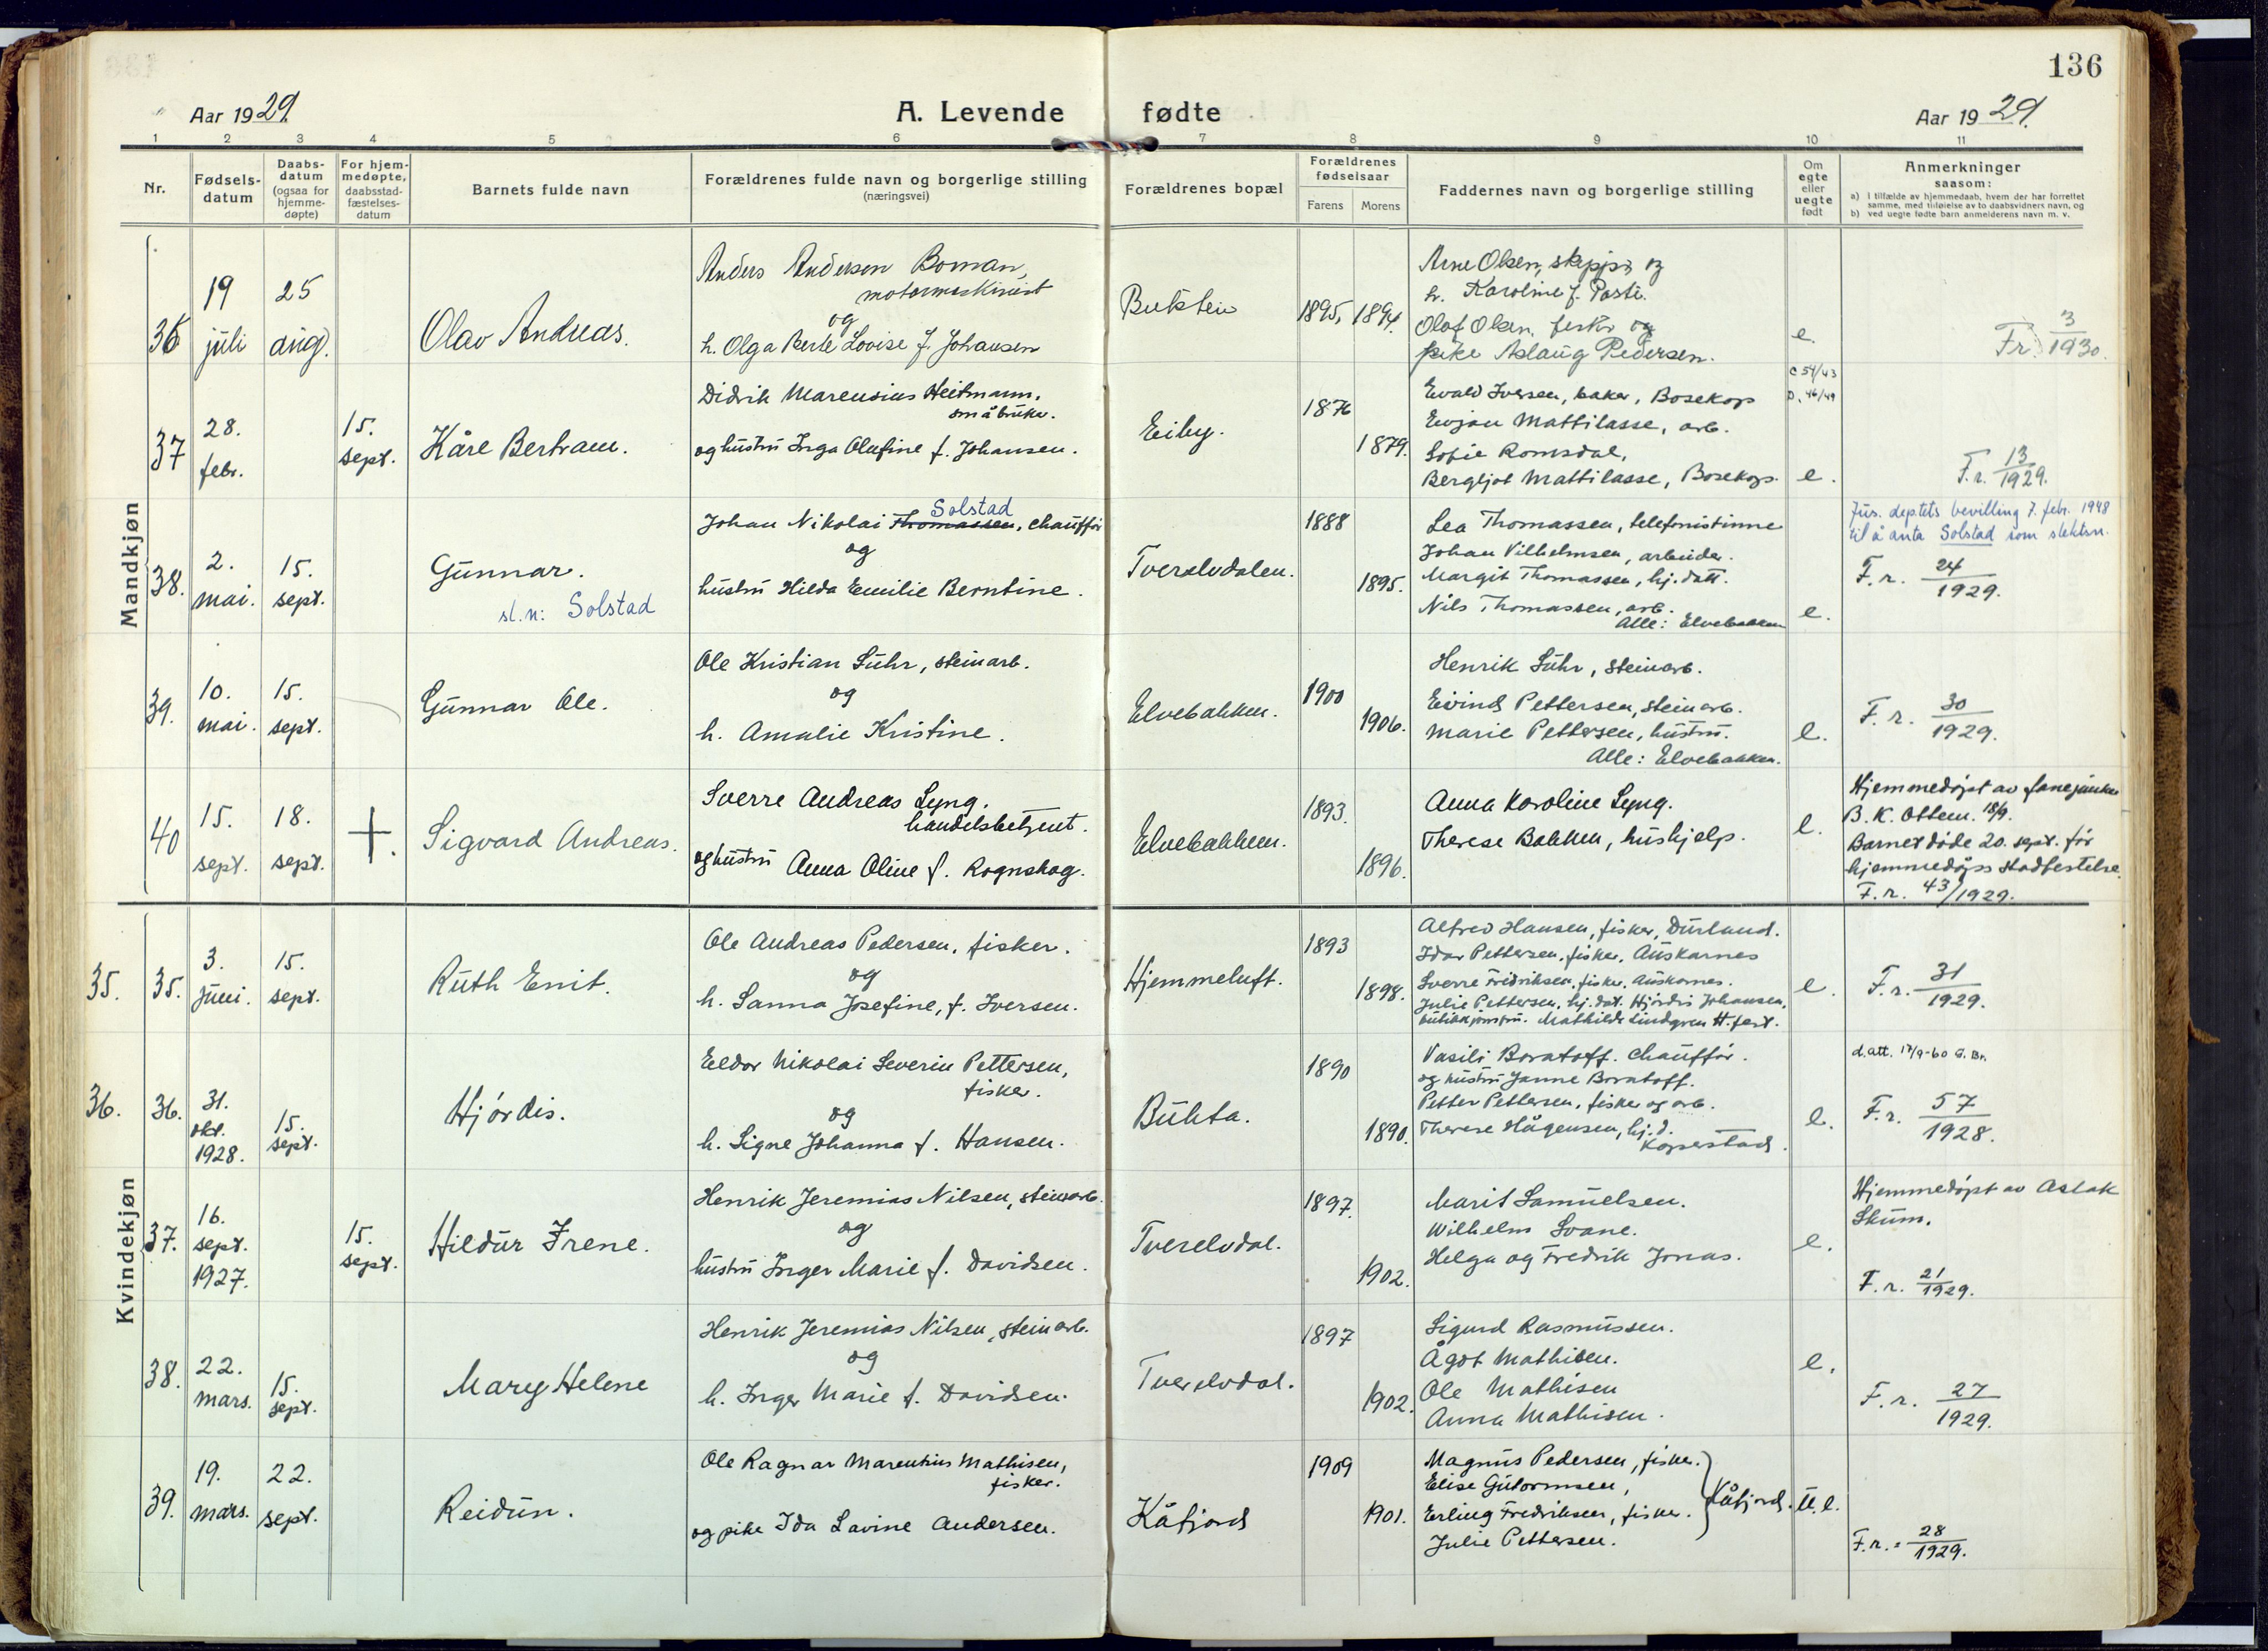 136
Aar 1929.
A. Levende fødte
Aar 1929.
1 2 3 4 5 6 7 8 9 10 11
Nr.
Fødsels-
datum
Daabs-
datum
(ogsaa for
hjemme-
døpte)
For hjem-
medøpte,
daabsstad-
fæstelses-
datum
Barnets fulde navn
Forældrenes fulde navn og borgerlige stilling
(næringsvei)
Forældrenes bopæl
Forældrenes
fødselsaar
Farens Morens
Faddernes navn og borgerlige stilling
Om
egte
eller
uegte
født
Anmerkninger
saasom:
a) I tilfælde av hjemmedaab, hvem der har forrettet
samme, med tilføielse av to daabsvidners navn, og
b) ved uegte fødte barn anmelderens navn m. v.
Mandkjøn
36
19
juli
25
aug.
Olav Andreas.
Anders Andersen Boman,
motormaskinist
og
h. Olga Berte Lovise f. Johansen
1895, 1894.
Arne Olsen, skipper og
h. Karoline f.
Olaf Olsen, fisker og
pike Aslaug Pedersen.
e.
Fr. 3/1930.
37
28.
febr.
15.
sept.
Kåre Bertram.
Didrik Marensius Heitmann,
småbruker.
og hustru Inga Olufine f. Johansen.
Eiby.
1876
1879.
Evald Iversen, baker, Bosekop
Mattilasse, arb.
Sofie Romsdal,
Bergljot Mattilasse, Bosekop.
C 54/43
D. 46/49
e.
F.r. 13/1929.
38.
2.
mai.
15.
sept.
Gunnar.
sl.n: Solstad
Solstad
Johan Nikolai Thomassen, chauffør
og
hustru Hilda Emilie Berntine.
Tverelvdalen.
1888
1895.
Lea Thomassen, telefonistinne
Johan Vilhelmsen, arbeider.
Margit Thomassen, hj. datt.
Nils Thomassen, arb.
Alle: Elvebakken
e.
Jus. dep.tets bevilling 7. febr. 1948
til å anta Solstad som slektsn.
F.r. 24/1929.
39.
10.
mai.
15.
sept.
Gunnar Ole.
Ole Kristian Suhr, steinarb.
og
h. Amalie Kristine.
Elvebakken.
1900
1906.
Henrik Suhr, steinarb.
Eivind Pettersen, steinarb.
Marie Pettersen, hustru.
Alle: Elvebakken.
e.
F.r. 30/1929.
40
15.
sept.
18.
sept.
+.
Sigvard Andreas.
Sverre Andreas Lyng.
handelsbetjent.
og hustru Anna Oline f. Rognskog.
Elvebakken.
1893.
1896.
Anna Karoline Lyng.
Therese Bakken, hushjelp.
e.
Hjemmedøpt av fanejunker
B. K. Ottem. 18/9.
Barnet døde 20. sept. før
hjemmedåps stadfestelse.
F.r. 43/1929.
Kvindekjøn
35. 35.
3.
juni.
15.
sept.
Ruth Enit.
Ole Andreas Pedersen, fisker.
og
h. Sanna Josefine, f. Iversen.
Hjemmeluft.
1893
1898.
Alfred Hansen, fisker,
Idar Pettersen, fisker, Auskarnes
Sverre Fridriksen, fisker, Auskarnes.
Julie Pettersen, hj. dat. Hjørdis Johansen,
butikkjomfru. Mathilde Lindgren H.fest.
e.
F.r. 31/1929.
36. 36.
31.
okt.
1928.
15.
sept.
Hjørdis.
Eeldor Nikolai Severin Pettersen,
fisker.
og
h. Signe Johanna f. Hansen.
Bukta.
1890
1890.
Vasili Boratoff. Chauffør.
og hustru Janne Boratoff.
Petter Pettersen, fisker og arb.
Therese Hågensen, hj.d.
e.
d.att. 17/9-60
F.r. 57/1928.
37.
16.
sept.
1927.
15.
sept.
Hildur Irene.
Henrik Jeremias Nilsen, steinarb.
og
hustru Inger Marie f. Davidsen.
Tverelvdal.
1897.
1902.
Marit Samuelsen.
Wilhelm Svane.
Helga og Fredrik Jonas.
e.
Hjemmedøpt av Aslak
Skum.
F.r. 21/1929.
38.
22.
mars.
15.
sept.
Mary Helene
Henrik Jeremias Nilsen, steinarb.
og
h. Inger Marie f. Davidsen.
Tverelvdal.
1897
1902.
Sigurd Rasmussen.
Ågot Mathisen.
Ole Mathisen
Anna Mathisen.
e.
F.r. 27/1929.
39.
19.
mars.
22.
sept.
Reidun.
Ole Ragnar Marentius Mathisen,
fisker.
og pike Ida Lavine Andersen.
Kåfjord
1909
1901.
Magnus Pedersen, fisker.
Elise Gutormsen,
Erling Fredriksen, fisker.
Julie Pettersen.
Kåfjord.
U.e.
F.r. 28/1929.